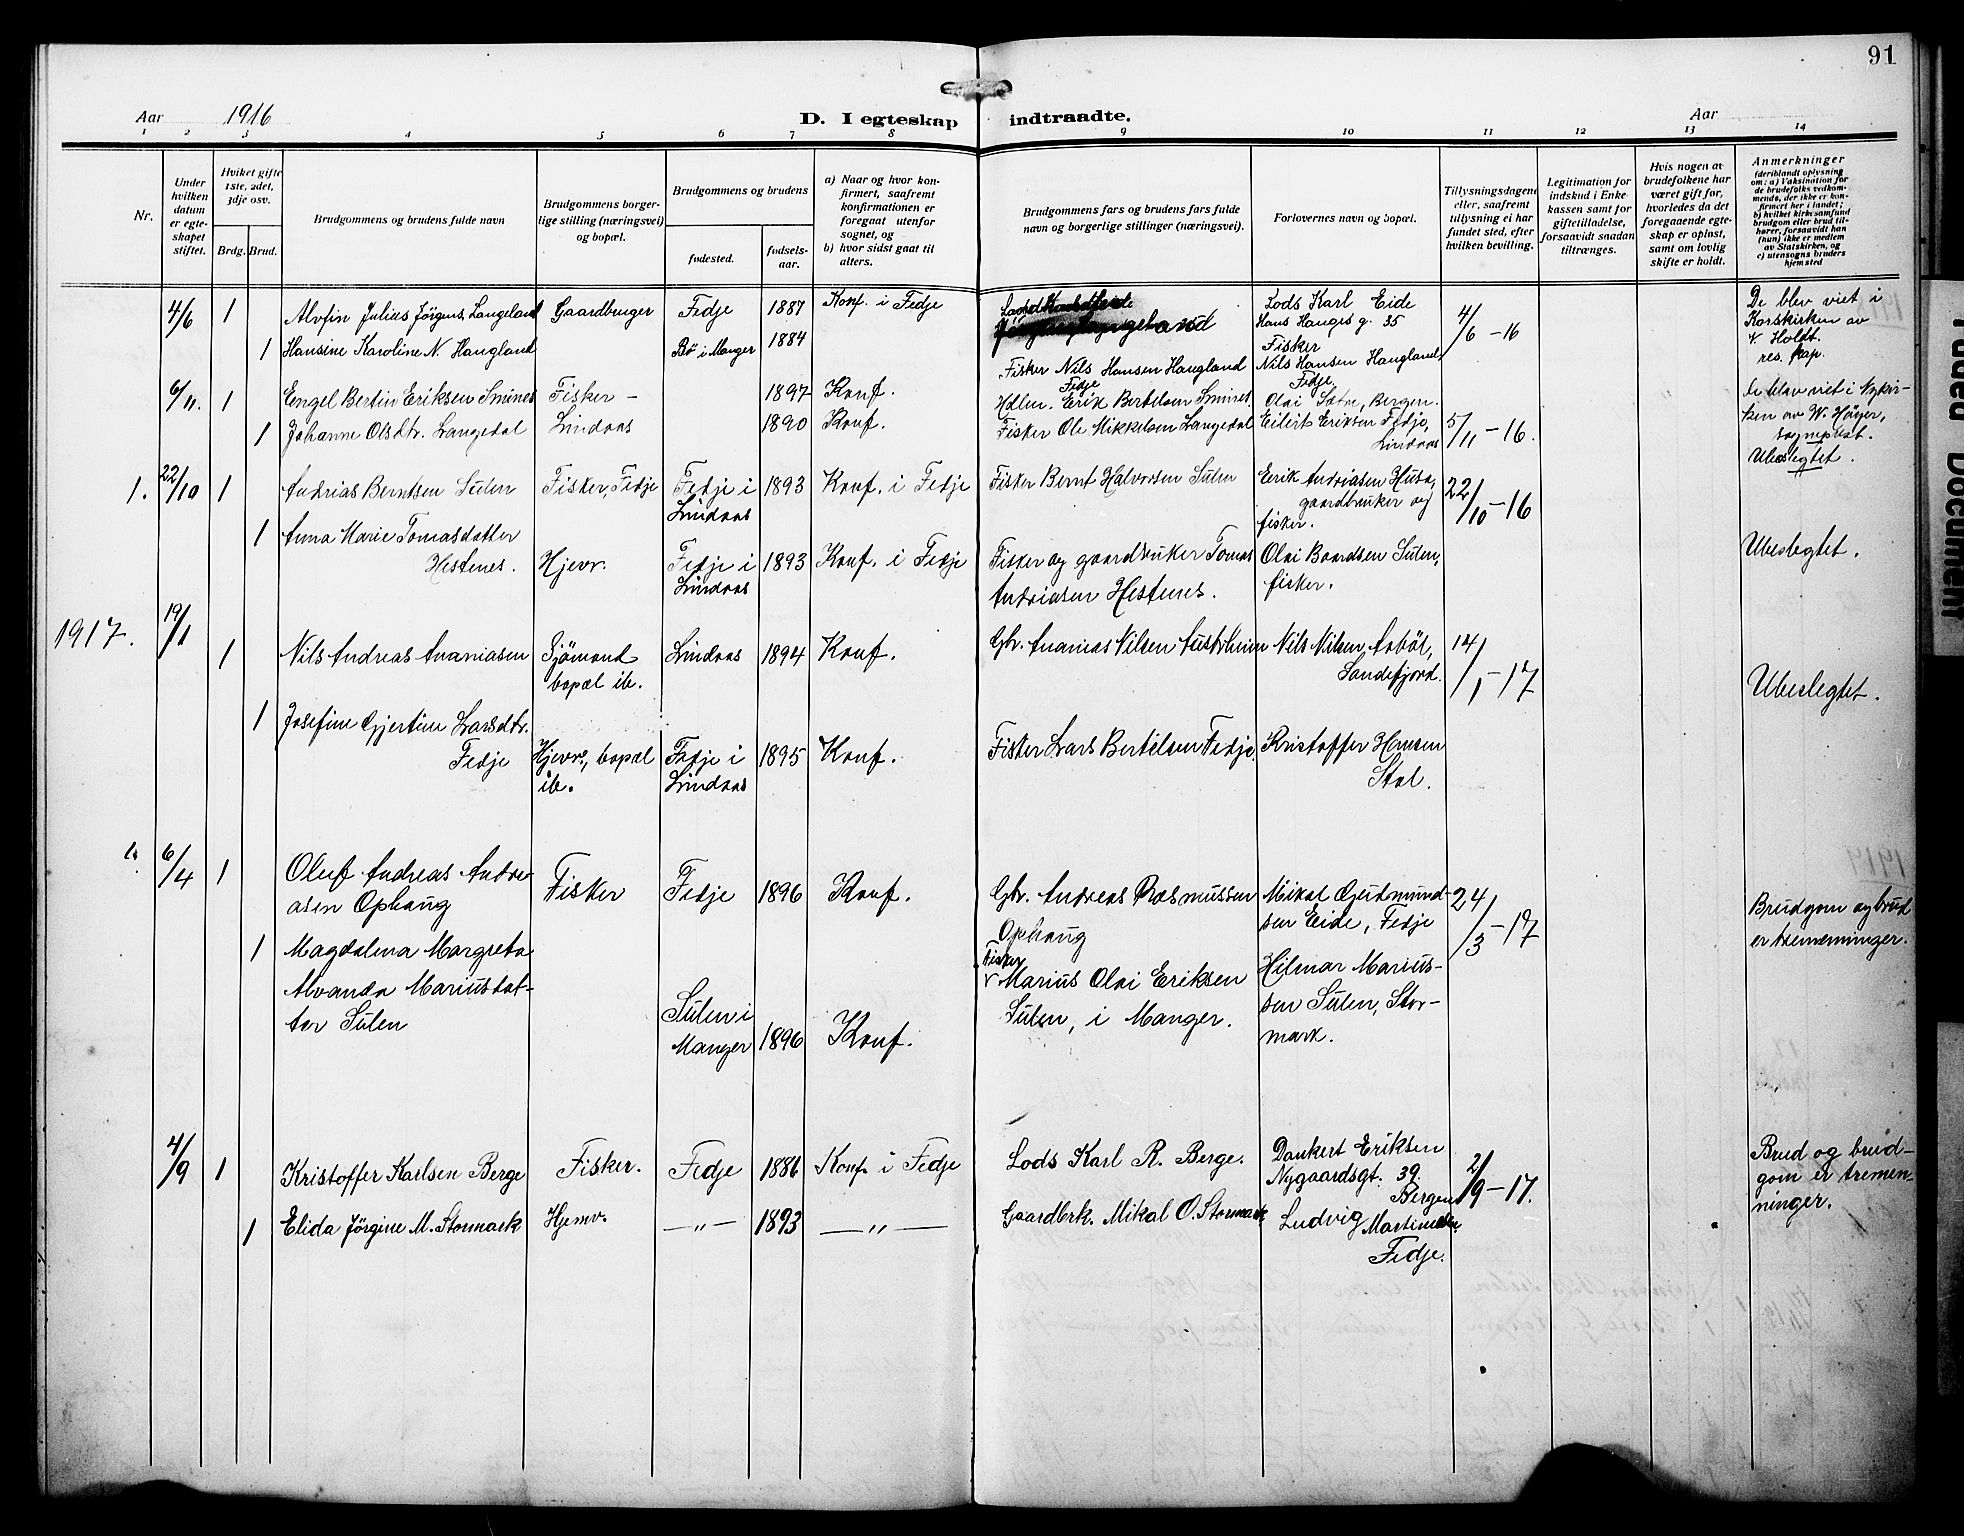 91
Aar 1916
D. I egteskap indtraadte.
Aar
1 2 3 4 5 6 7 8 9 10 11 12 13 14
Nr.
Under hvilken datum er egteskapet stiftet.
Hvilket gifte 1ste, 2det, 3dje osv.
Brdg. Brud.
Brudgommens og brudens fulde navn
Brudgommens borgerlige stilling (næringsvei) og bopæl.
Brudgommens og brudens
fødested.
fødselsaar.
a) Naar og hvor konfirmert, saafremt konfirmationen er foregaat utenfor sognet, og
b) hvor sidst gaat til alters.
Brudgommens fars og brudens fars fulde navn og borgerlige stillinger (næringsvei).
Forlovernes navn og bopæl.
Tillysningsdagene eller, saafremt tillysning ei har fundet sted, efter hvilken bevilling.
Legitimation for indskud i Enkekassen samt for giftetilladelse, forsaavidt saadan tiltrænges.
Hvis nogen av brudefolkene har været gift før, hvorledes da det foregaaende egteskap er opløst, samt om lovlig skifte er holdt.
Anmerkninger (deriblandt oplysning om: a) Vaksination for de brudefolks vedkommende, der ikke er konfirmert her i landet; b) hvilket kirkesamfund brudgom eller brud tilhører, forsaavidt han (hun) ikke er medlem av Statskirken, og c) utensogns bruders hjemsted
4/6 1 Alvfin Julius Jörgens. Langeland Gaardbruger Fedje 1887 Konf. i Fedje
Lods Karl Eide
Hans Hauges g. 35
4/6 – 16
De blev viet i Korskirken av Holdt. res. kap.
1 Hansine Karoline N. Haugland Bö i Manger 1884
Fisker Nils Hansen Haugland, Fedje
Fisker Nils Hansen Haugland, Fedje.
6/11. 1 Engel Bertin Eriksen Smines Fisker – 1897 Konf.
Erik Bertelsen Smines
Olai Sætre, Bergen.
De blev viet i Nykirken av W. Höyer, sogneprest. Ubeslegtet.
1 Johanne Olsdtr. Langedal Lindaas 1890 Konf.
Fisker Ole Mikkelsen Langedal
Eilert Eriksen Fedje, Lindaas
5/11 – 16.
1. 22/10 1 Andrias Berntsen Sulen Fisker, Fedje Fedje i Lindaas 1893 Konf. i Fedje
Fisker Bernt Halvorsen Sulen
Erik Andriasen Husa, gaardbruker og fisker.
22/10 – 16
1 Anna Marie Tomasdatter Hestenes. Hjevr. Fedje i Lindaas 1893 Konf. i Fedje
Fisker og gaardbruker Tomas Andriasen Hestenes.
Olai Baardsen Sulen, fisker.
Ubeslegtet.
1917. 19/1
1 Nils Andreas Ananiasen Sjömand bopæl ib. Lindaas 1894 Konf.
Gbr. Ananias Nilsen Austrheim
Nils Nilsen Asböt, Sandefjord.
14/1 – 17
Ubeslegtet.
1 Josefine Gjertine Larsdtr. Fedje Hjevr., bopæl ib. Fedje i Lindaas 1895 Konf.
Fisker Lars Bertelsen Fedje.
Kristoffer Hansen Stol.
1. 6/4 1 Oluf Andreas Andreasen Ophaug Fisker Fedje 1896 Konf.
Gbr. Andreas Rasmussen Ophaug
Mikal Gjudmundsen Eide, Fedje
24/3 – 17
Brudgom og brud er tremenninger.
1 Magdalena Margreta Alvanda Mariusdatter Sulen Sulen i Manger 1896 Konf.
Fisker Marius Olai Eriksen Sulen, i Manger.
Hilmar Mariussen Sulen, Stormark.
4/9 1 Kristoffer Karlsen Berge Fisker. Fedje 1886 Konf. i Fedje
Lods Karl R. Berge.
Dankert Eriksen Nygaardsgt. 39. Bergen
2/9 – 17.
Brud og brudgom er tremenninger.
1 Elida Jörgine M. Stormark Hjemv. —„— 1893 —„—
Gaardbrk. Mikal O. Stormark
Ludvig Martinussen Fedje.
Document